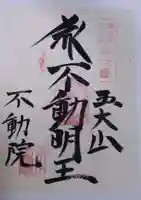 五大山
奉 不動明王
不動院